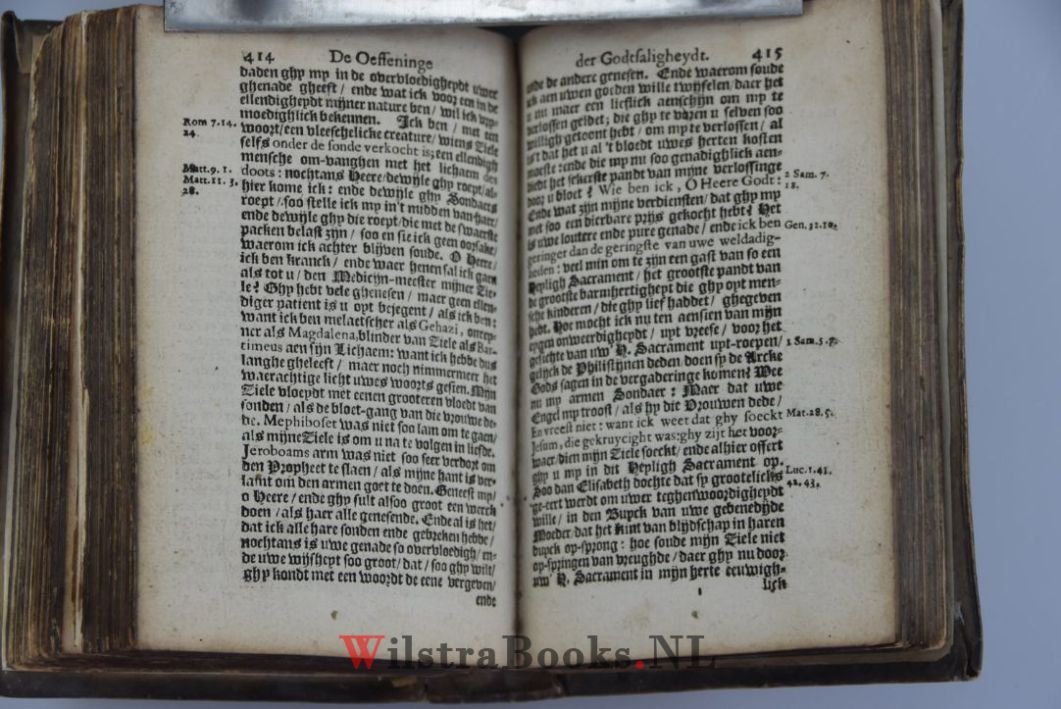 414 De Oeffeninge
daden ghy my in de overvloedigheydt uwer
ghenade gheeft / ende wat ick voor een in de
ellendigheydt mijner nature ben / wil ick
moedighlick bekennen. Ick ben / met een
Rom 7.14.
24.
woort / een vleeschelicke creature / wiens Ziele
selfs onder de sonde verkocht is; een ellendigh
mensche om-vanghen met het lichaem des
Matt.9. 1.
Matt.11. 3.
28.
doots: nochtans Heere / dewijle ghy roept / al-
hier kome ick: ende dewijle ghy Sondaers
roept / soo stelle ick my in't midden van haer /
ende dewijle ghy die roept / die met de swaerste
packen belast zijn / soo en sie ick geen oorsake /
waerom ick achter blijven soude. O Heere /
ick ben kranck / ende waer henen sal ick gaen
als tot u / den Medicijn-meester mijner Zie-
le? Ghy hebt vele ghenesen / maer geen ellen-
diger patient is u opt bejegent / als ick ben:
want ick ben melaetscher als Gehazi, onrey-
ner als Magdalena, blinder van Ziele als Bar-
timeus aen sijn Lichaem: want ick hebbe dus
langhe gheleeft / maer noch nimmermeer het
waerachtige licht uwes woorts gesien. Mijn
Ziele vloeydt met eenen grooteren vloedt van
sonden / als de bloet-gang van die vrouwe de-
de. Mephiboset was niet soo lam om te gaen /
als mijne Ziele is om u na te volgen in liefde.
Jeroboams arm was niet soo seer verdort om
den Propheet te slaen / als mijne hant is ver-
lamt om den armen goet te doen. Geneest my /
o Heere / ende ghy sult alsoo groot een werck
doen / als haer alle genesende. Ende al is het /
dat ick alle hare sonden ende gebreken hebbe /
nochtans is uwe genade so overvloedigh / en-
de uwe wijsheyt soo groot / dat / soo ghy wilt /
ghy kondt met een woordt de eene vergeven /
ende
der Godtsaligheydt. 415
ende de andere genesen. Ende waerom soude
ick aen uwen goeden wille twijfelen / daer het
u nu maer een lieflick aenschijn om my te
verlossen geldet; die ghy te voren u selven soo
willigh getoont hebt / om my te verlossen / al
is't dat het u al 't bloedt uwes herten kosten
moeste: ende die my nu soo genadighlick aen-
biedt het sekerste pandt van mijne verlossinge
door u bloet? Wie ben ick, O Heere Godt:
2 Sam. 7.
18.
Ende wat zijn mijne verdiensten / dat ghy my
met soo een dierbare prijs gekocht hebt? Het
is uwe loutere ende pure genade / ende ick ben
Gen. 32.10.
geringer dan de geringste van uwe weldadig-
heden: veel min om te zijn een gast van so een
Heyligh Sacrament / het grootste pandt van
de grootste barmhertigheyt die ghy opt men-
sche kinderen / die ghy lief haddet / ghegeven
hebt. Hoe mocht ick nu ten aensien van mijn
eygen onweerdigheydt / uyt vreese / voor het
gesichte van uw' H. Sacrament uyt-roepen /
1 Sam. 5.7.
gelijck de Philistijnen deden doen sy de Arcke
Gods sagen in de vergaderinge komen? Wee
nu my armen Sondaer: Maer dat uwe
Engel my troost / als hy die Vrouwen dede /
En vreest niet: want ick weet dat ghy soeckt
Mat.28.5.
Jesum, die gekruycight was: ghy zijt het voor-
waer / dien mijn Ziele soeckt / ende alhier offert
ghy u my in dit Heyligh Sacrament op.
Soo dan Elisabeth dochte dat sy grootelicks
Luc. 1.41.
42. 43.
ge-eert werdt om uwer teghenwoordigheydt
wille / in den Buyck van uwe gebenedijde
Moeder / dat het kint van blijdschap in haren
buyck op-sprong: hoe soude mijn Ziele niet
op-springen van vreughde / daer ghy nu door
uw' H. Sacrament in mijn herte eeuwigh-
lick
WilstraBooks.NL